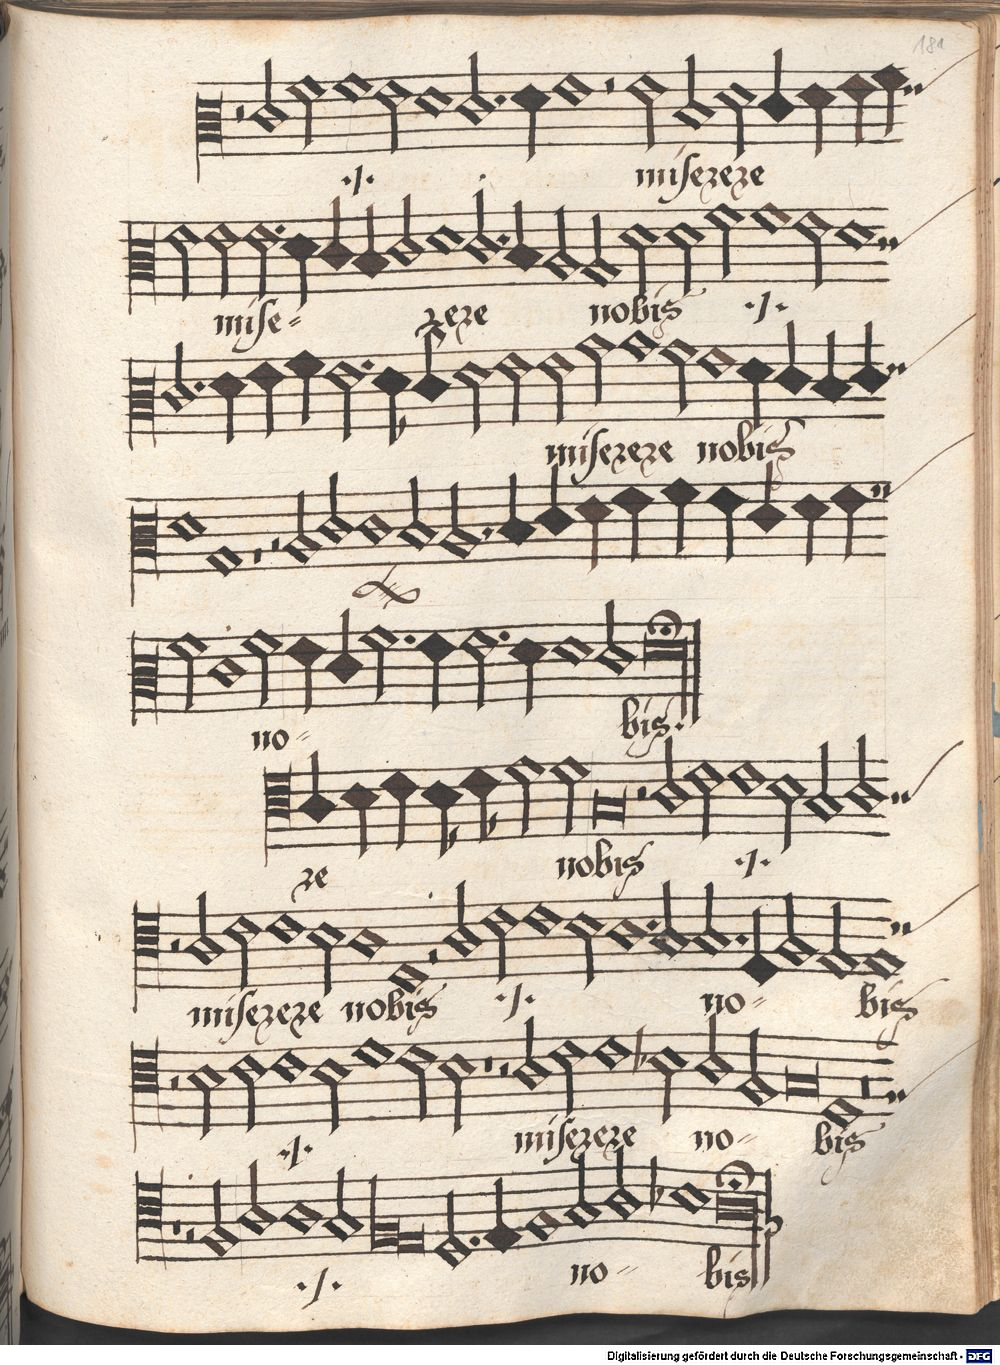 181
·/· miserere
mise= rere nobis ·/·
miserere nobis
no= bis.
re nobis ·/·
miserere nobis ·/· no= bis
·/· miserere no= bis
·/· no= bis
Digitalisierung gefördert durch die Deutsche Forschungsgemeinschaft - DFG